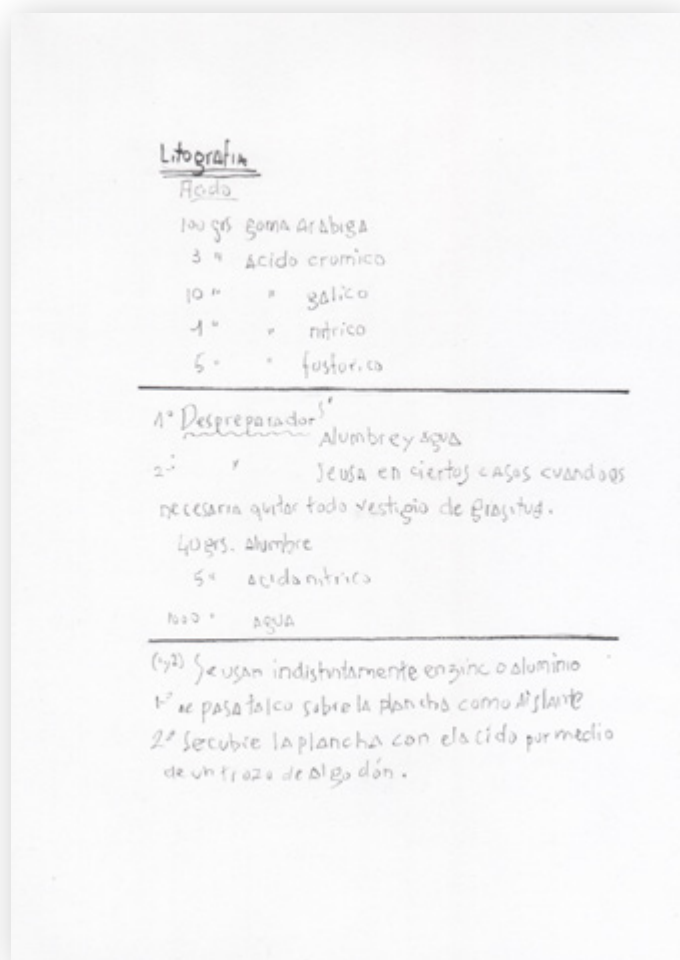 Litografia
Acido
100 grs goma Arabiga
3 " acido cromico
10 " " galico
1 " " nitrico
5 " " fosforico
1º Despreparador
Alumbre y agua
2º " Se usa en ciertos casos cuando es
necesaria quitar todo vestigio de grasitud.
40 grs. Alumbre
5 " acido nitrico
1000 " agua
(1 y 2) Se usan indistintamente en zinc o aluminio
1º se pasa talco sobre la plancha como aislante
2º Se cubre la plancha con el acido por medio
de un trozo de algodón.